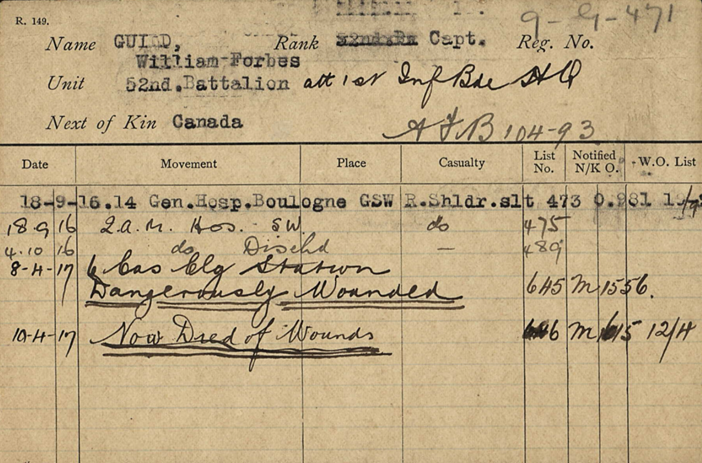 R. 149.
9-G-471
Name GUILD, Rank Capt. Reg. No.
William Forbes
Unit 52nd. Battalion att 1st Inf Bde HQ
Next of Kin Canada
AFB 104-93
Date Movement Place Casualty List No. Notified N/K O. W.O. List
18-9-16. 14 Gen. Hosp. Boulogne GSW R. Shldr. slt 473 0.981
18 9 16 2.A.M. Hos. SW. do 475
4.10 16 do Dischd — 489
8-4-17 6 Cas Clg Station
Dangerously Wounded 645 M1556.
10-4-17 Now Died of Wounds M1615 12/4